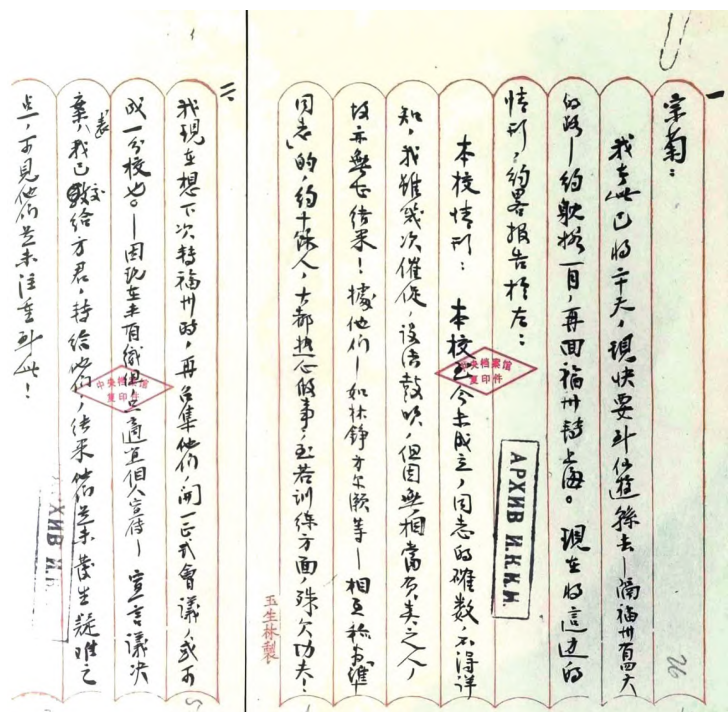 一
宗菊：
我去此已将二十天，現快要到仙遊縣去—隔福州有四天
的路—約躭擱一月，再回福州轉上海。現在將這边的
情形，約畧报告於左：
本校情形：本校至今未成立，同志的確数不得詳
知，我雖幾次催促，設法鼓吹，但因無相當負責之人，
故亦無甚结果！據他们—如林錚方尔灝等—相互称為準
同志的，約十餘人，大都热心做事，至若訓练方面，殊欠功夫！
玉生林製
26
АРХИВ И.К.К.И.
中央档案馆
复印件
二
我現在想下次转福州時，再召集他们，開一正式會議，或可
成一分校也。—因現在未有
適宜個人
宣言議决
案，我已
给方君，轉给他们，结果他们並未發生疑难之
点，可見他们並未注重到此！
中央档案馆
复印件